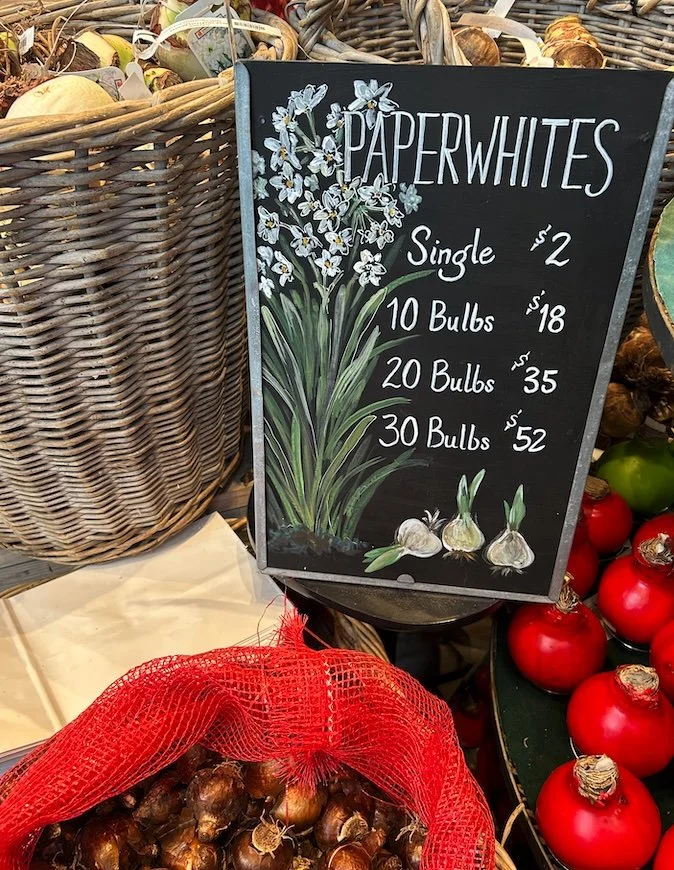 PAPERWHITES
Single $2
10 Bulbs $18
20 Bulbs $35
30 Bulbs $52